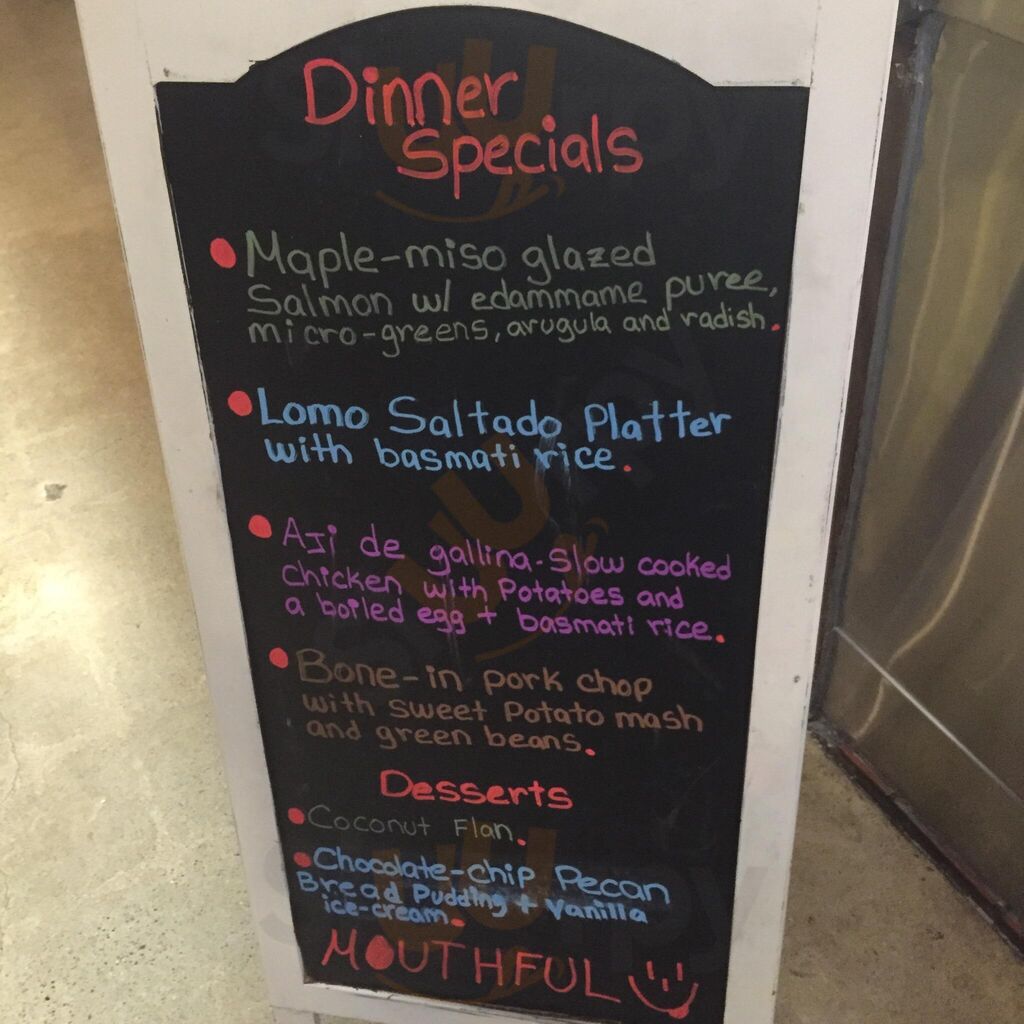 Dinner
Specials
Maple-miso glazed
Salmon w/ edammame puree,
micro-greens, arugula and radish.
Lomo Saltado Platter
with basmati rice.
Aji de gallina. Slow cooked
chicken with Potatoes and
a boiled egg + basmati rice.
Bone-in pork chop
with sweet Potato mash
and green beans.
Desserts
Coconut Flan.
Chocolate-chip Pecan
Bread Pudding + Vanilla
ice-cream.
MOUTHFUL